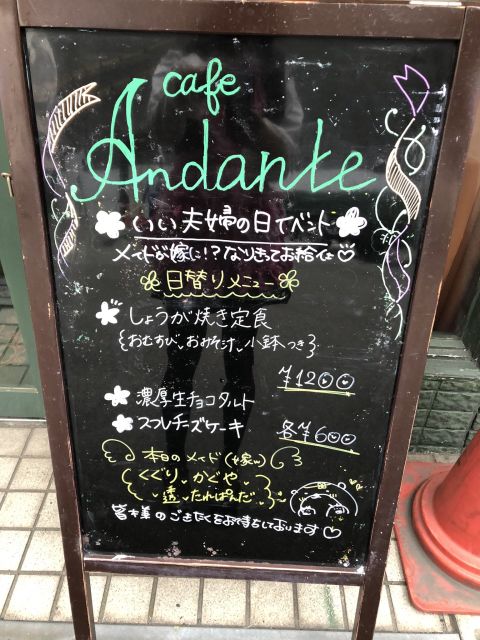 cafe
Andante
いい夫婦の日イベント
メイドが嫁に!?なりきってお給仕♡
日替りメニュー
しょうが焼き定食
{おむすび、おみそ汁、小鉢つき}
¥1200
濃厚生チョコタルト
スフレチーズケーキ
各¥600
本日のメイド(嫁w)
くぐり、かぐや
透、たれぱんだ
皆様のごきたくをお待ちしております♡